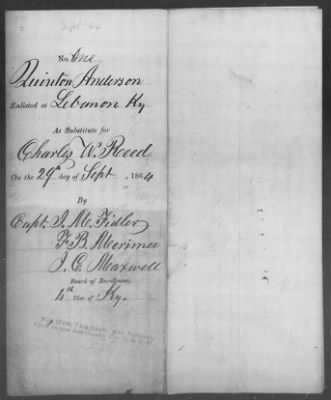 Sept 64
No. One
Quinton Anderson
Enlisted at Lebanon Ky
As Substitute for
Charles W. Reed
On the 29th day of Sept, 1864
By
Capt. J. M. Fidler
F. B. Merimee
J. C. Maxwell
Board of Enrollment,
4th Dist. of Ky.